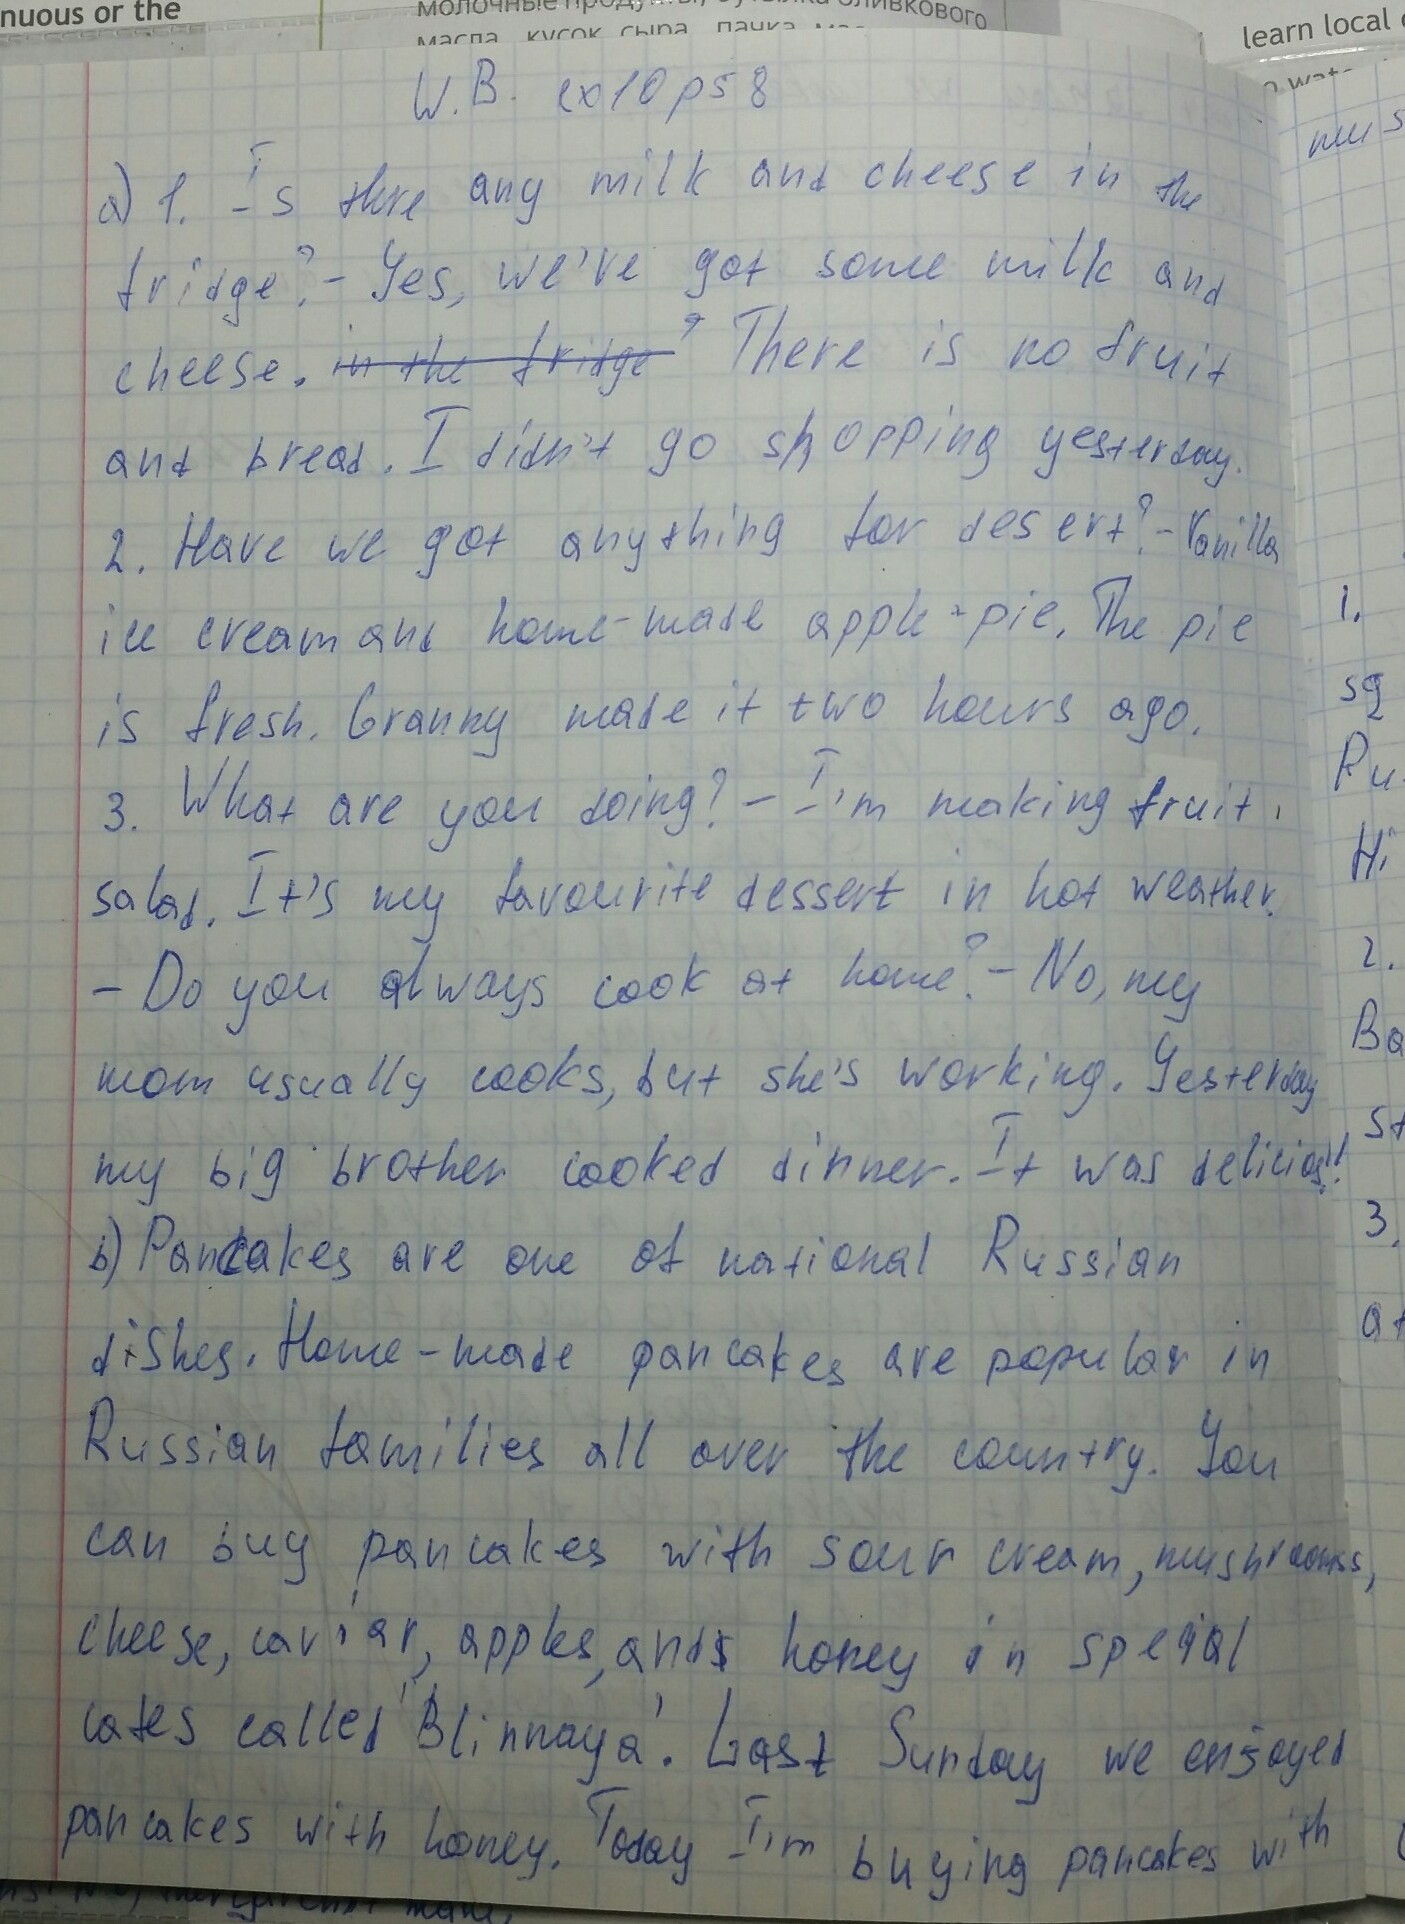 nuous or the
молочные продукты, бутылка оливкового
масла, кусок сыра, пачка
learn local
W.B. ex10 p58
a) 1. Is there any milk and cheese in the
fridge? - Yes, we've got some milk and
cheese. in the fridge? There is no fruit
and bread. I didn't go shopping yesterday.
2. Have we got anything for desert? - Vanilla
ice cream and home-made apple-pie. The pie
is fresh. Granny made it two hours ago.
3. What are you doing? - I'm making fruit
salad. It's my favourite dessert in hot weather.
- Do you always cook at home? - No, my
mom usually cooks, but she's working. Yesterday
my big brother cooked dinner. It was delicios!
b) Pancakes are one of national Russian
dishes. Home-made pancakes are popular in
Russian families all over the country. You
can buy pancakes with sour cream, mushrooms,
cheese, caviar, apples, and honey in special
cafes called 'Blinnaya'. Last Sunday we enjoyed
pancakes with honey. Today I'm buying pancakes with
1.
sq
Ru
Hi
2.
Ba
st
3.
at